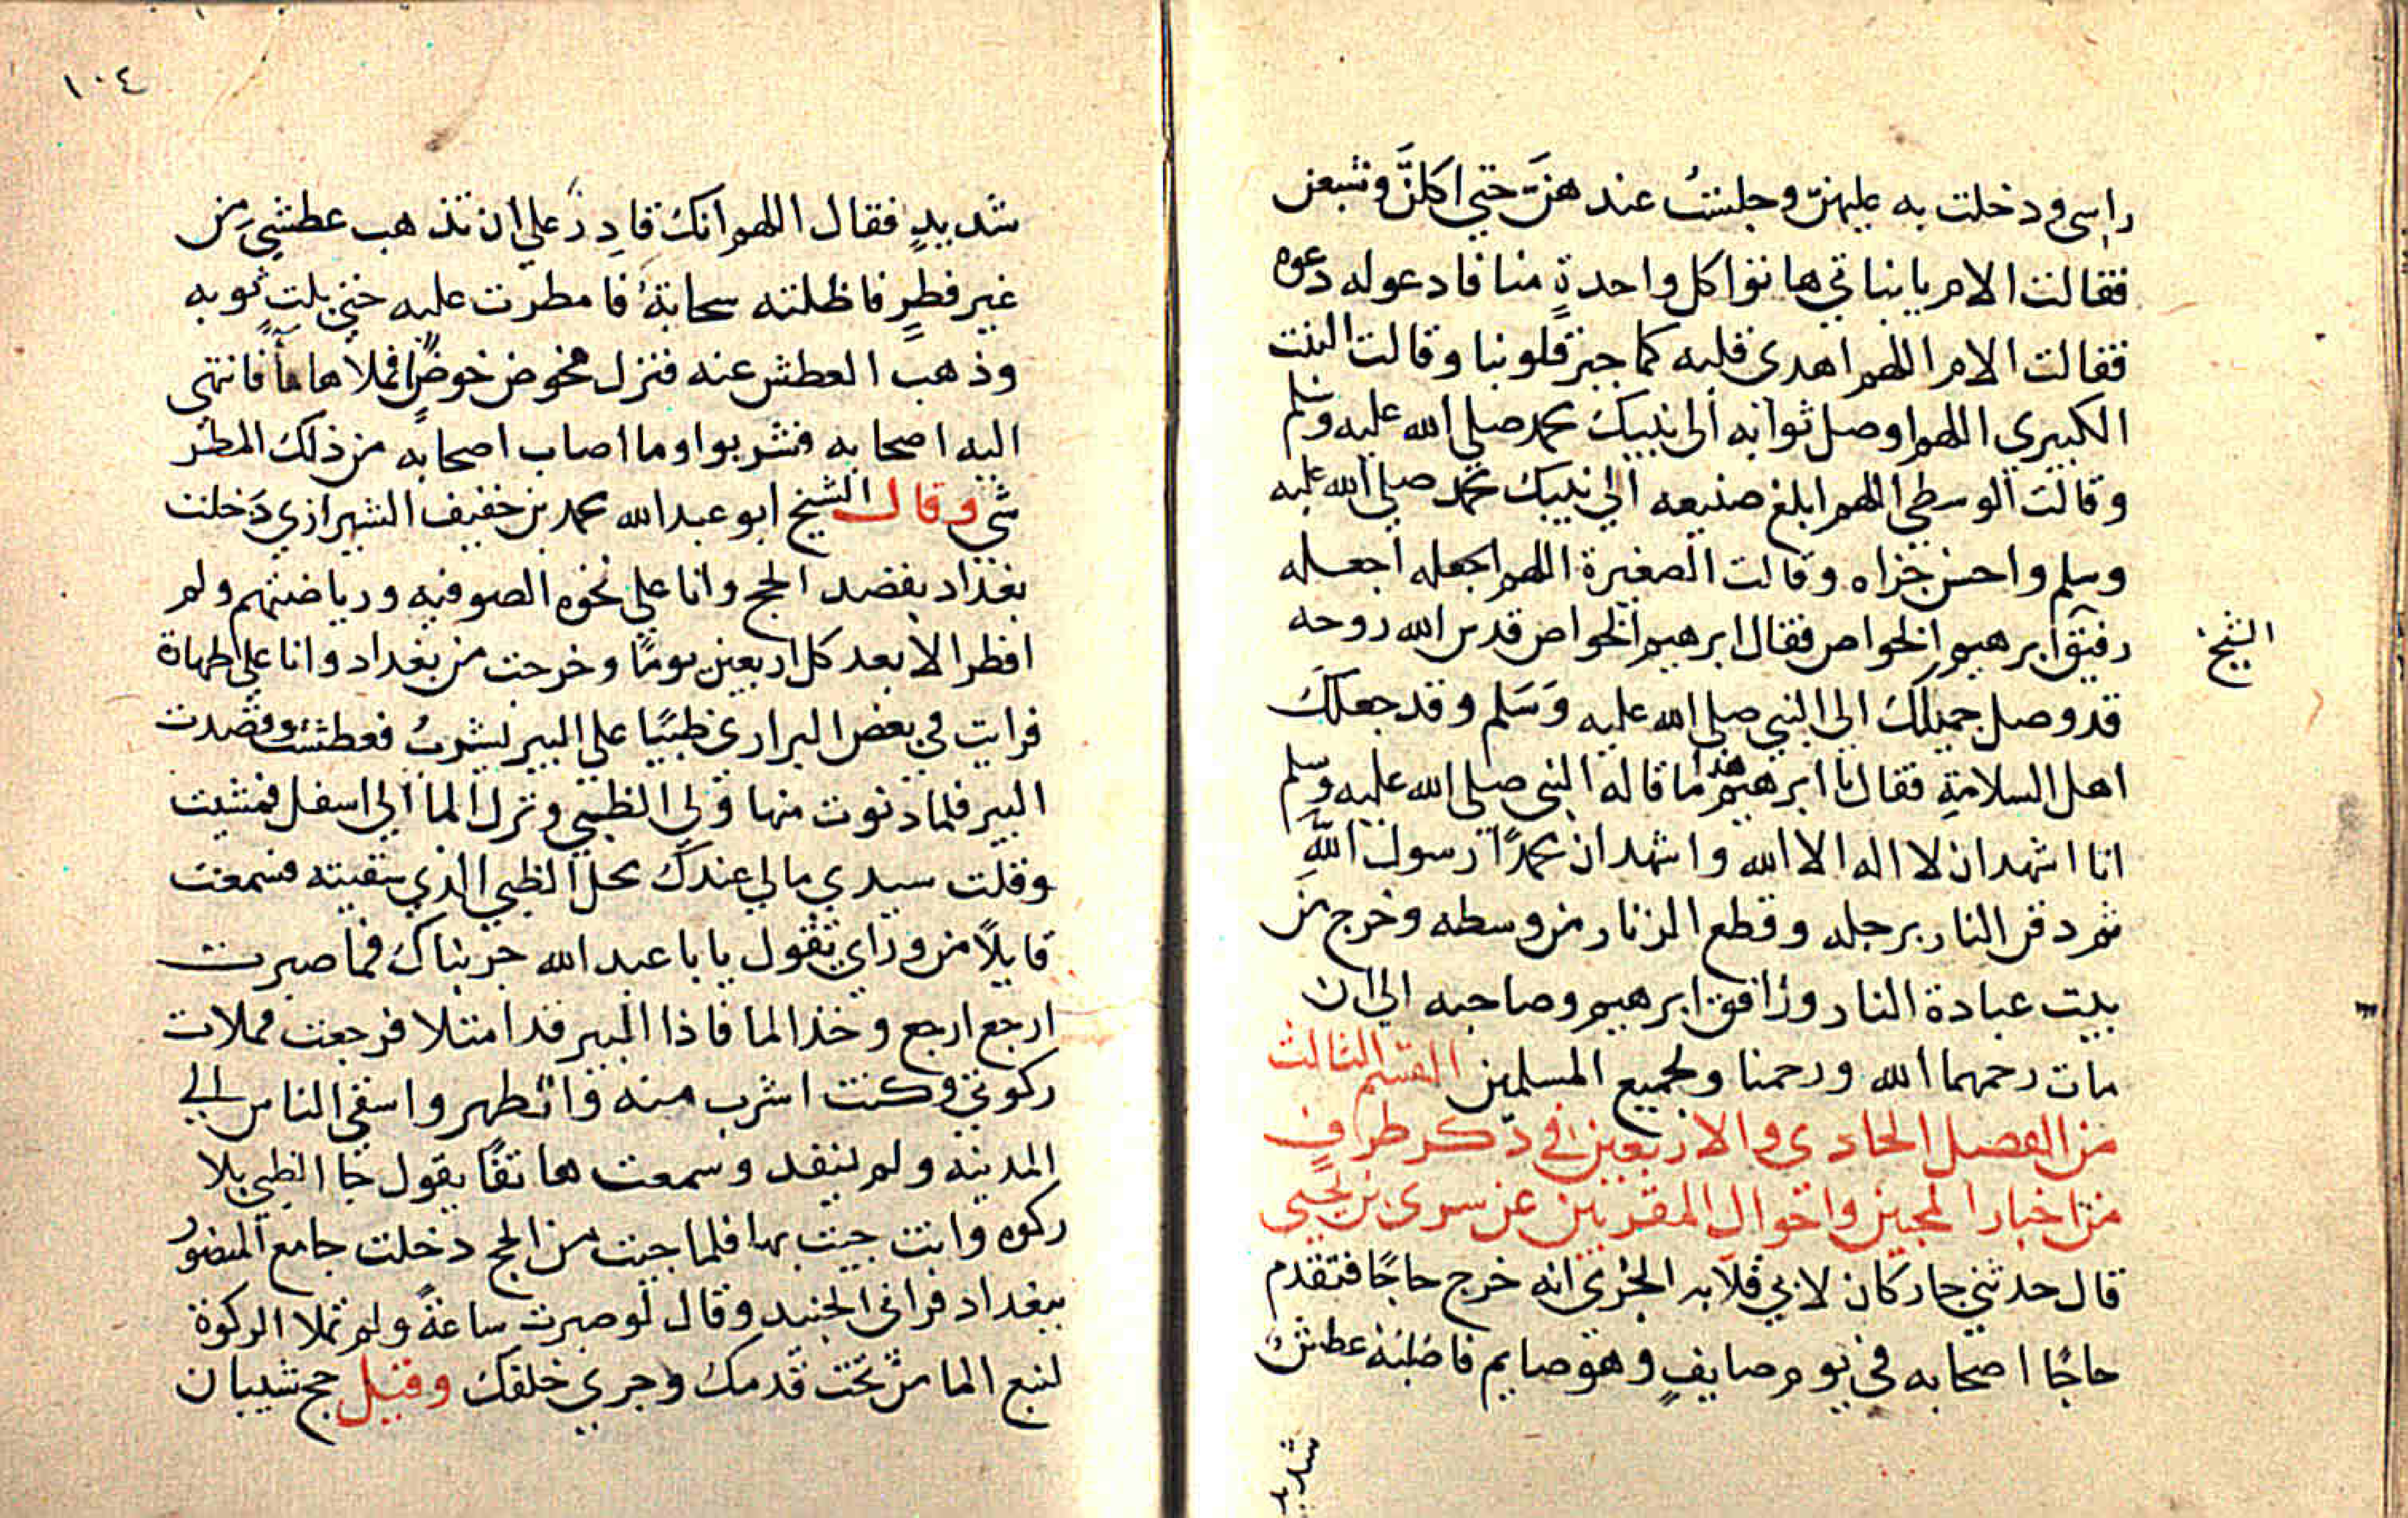 راسى ودخلت به عليهنّ وجلستُ عند هنَّ حتي اكلنَّ وشبعن
فقالت الام يا بناتي هاتوا كل واحدةٍ منا فادعوله دعوه
فقالت الام اللهم اهدى قلبه كما جبر قلوبنا وقالت البنت
الكبيري اللهم اوصل ثوابه الى نبيك محمد صلي الله عليه وسلم
وقالت الوسطي اللهم ابلغ صنيعه الي نبيك محمد صلي الله عليه
وسلم واحسن جزاه وقالت الصغيرة اللهم اجعله اجعله
رفيق ابرهيم الخواص فقال ابرهيم الخواص قدس الله روحه
الشيخ
قد وصل جميلك الى النبي صلى الله عليه وَسَلم وقد جعلك
اهل السلامةِ فقال يا ابرهيم هذا ما قاله النبى صلى الله عليه وسلم
انا اشهد ان لا اله الا الله واشهد ان محمدًا رسول اللهِ
ثم دفن النار برجله وقطع الزنار من وسطه وخرج من
بيت عبادة النار ورافق ابرهيم وصاحبه الى ان
مات رحمهما الله ورحمنا ولجميع المسلمين القسم الثالث
من الفصل الحادى والاربعين في ذكر طرافٍ
من اخبار المحبين واحوال المقربين عن سرى بن يحيي
قال حدثني جار كان لابي قلابه الجُرّي انه خرج حاجًا فتقدم
حاجًا اصحابه في يوم صايفٍ وهو صايم فاصابَته عطشٌ
شديد
١٠٤
شديدٍ فقال اللهم انك قادِر علي ان تذهب عطشي مِن
غير فطرٍ فاظلته سحابةُ فامطرت عليه حتي بلت ثوبه
وذهب العطش عنه فنزل فخوض خوضًا فملاها ماً فانتهى
اليه اصحابه فشربوا وما اصاب اصحابه من ذلك المطر
شي وقال الشيخ ابو عبد الله محمد بن خفيف الشيرازي دَخلت
بغداد بقصد الحج وانا علي نخوه الصوفيه ورياضتهم ولم
افطر الا بعد كل اربعين يومًا وخرجت من بغداد وانا على طهاة
فرايت في بعض البراري ظبيًا على البير ليشربُ فعطشت وقصدت
البير فلما دنوت منها ولى الظبي ونزل الما الي اسفل فمشيت
وقلت سيدي مالي عندك محل الظبي الذي سقيته فسمعت
قايلًا من وراي يقول يا با عبد الله جربناك فما صبرت
ارجع ارجع وخذ الما فاذا البير قد امتلا فرجعت فملات
ركوتي وكنت اشرب منه واتطهر واسقي الناس الي
المدينه ولم ينفد وسمعت هاتفًا يقول جا الظبي بلا
ركوه وانت جيت بها فلما جيت من الحج دخلت جامع المنصور
ببغداد فراني الجنيد وقال لو صبرت ساعةً ولم تملا الركوة
لنبع الما من تحت قدمك وجري خلفك وقيل حج شيبان